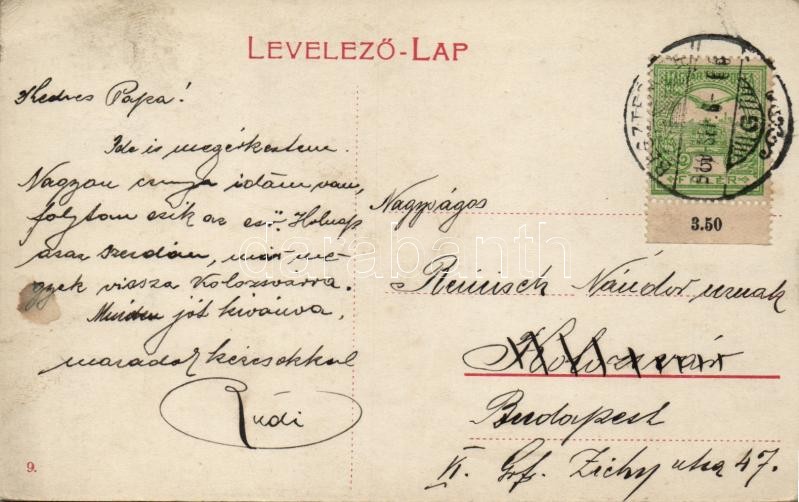 LEVELEZŐ-LAP
Kedves Papa!
Ide is megérkeztem.
Nagyon csunya időm van,
folyton esik az eső. Holnap
azaz szerdán, már me-
gyek vissza Kolozsvárra.
Minden jót kivánva,
maradok kézcsókkal
Rudi
9.
MAGYAR POSTA
3.50
Nagyságos
Reinisch Nándor urnak
Kolozsvár
Budapest
VI. Grf. Zichy utca 47.
darabanth.com